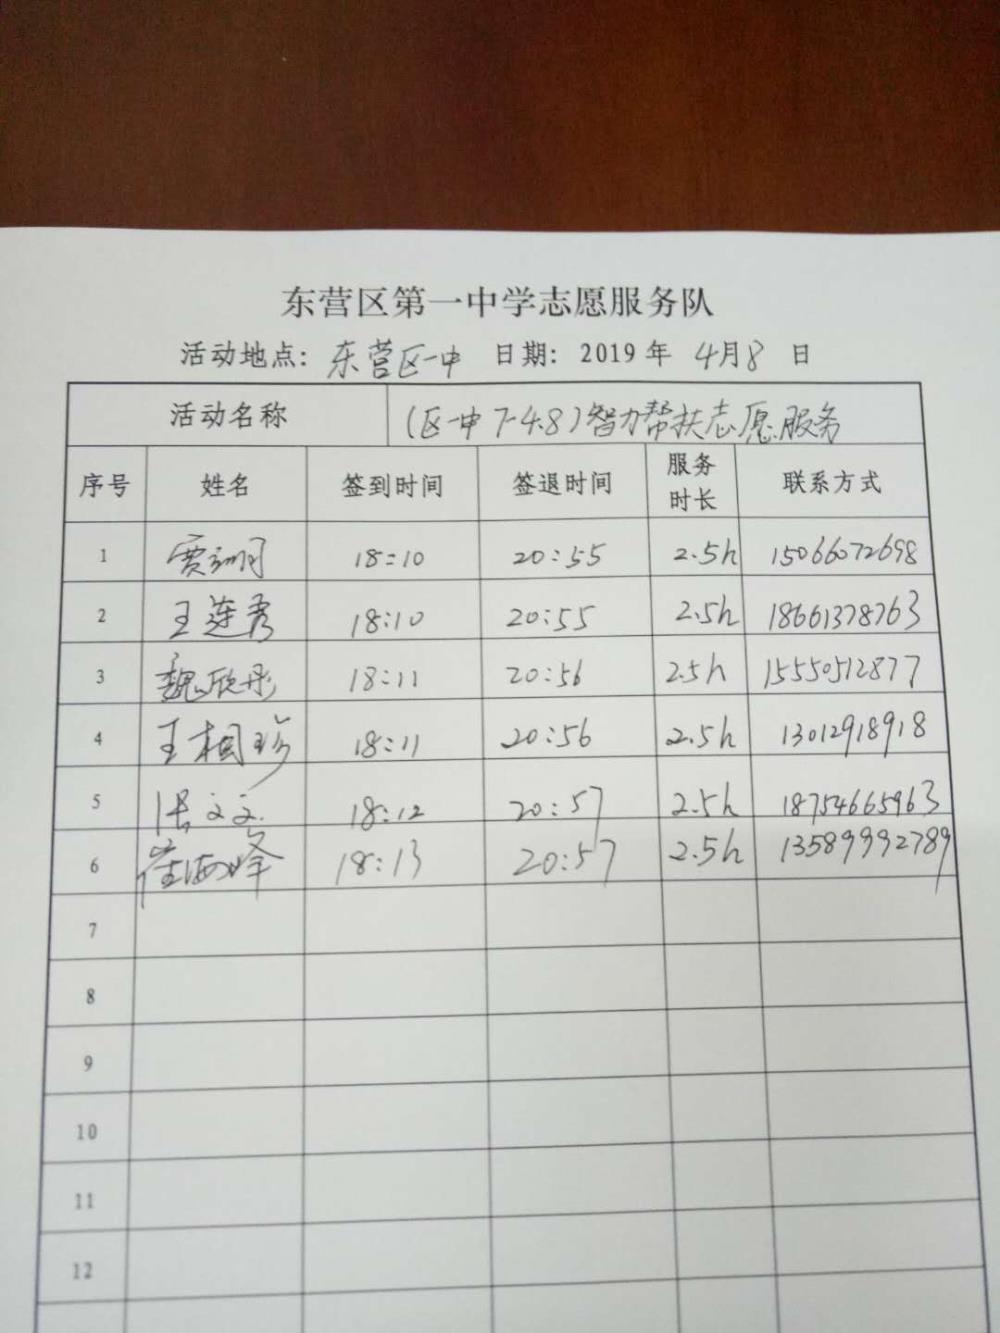 东营区第一中学志愿服务队
活动地点: 东营区一中 日期: 2019 年 4月8 日
活动名称 (区一中7-4.8)智力帮扶志愿服务
序号 姓名 签到时间 签退时间 服务时长 联系方式
1 贾 18:10 20:55 2.5h 15066072698
2 王莲秀 18:10 20:55 2.5h 18661378763
3 魏欣彤 18:11 20:56 2.5h 15550512877
4 王相珍 18:11 20:56 2.5h 13012918918
5 张文文 18:12 20:57 2.5h 18754665963
6 崔海峰 18:13 20:57 2.5h 13589992789
7
8
9
10
11
12